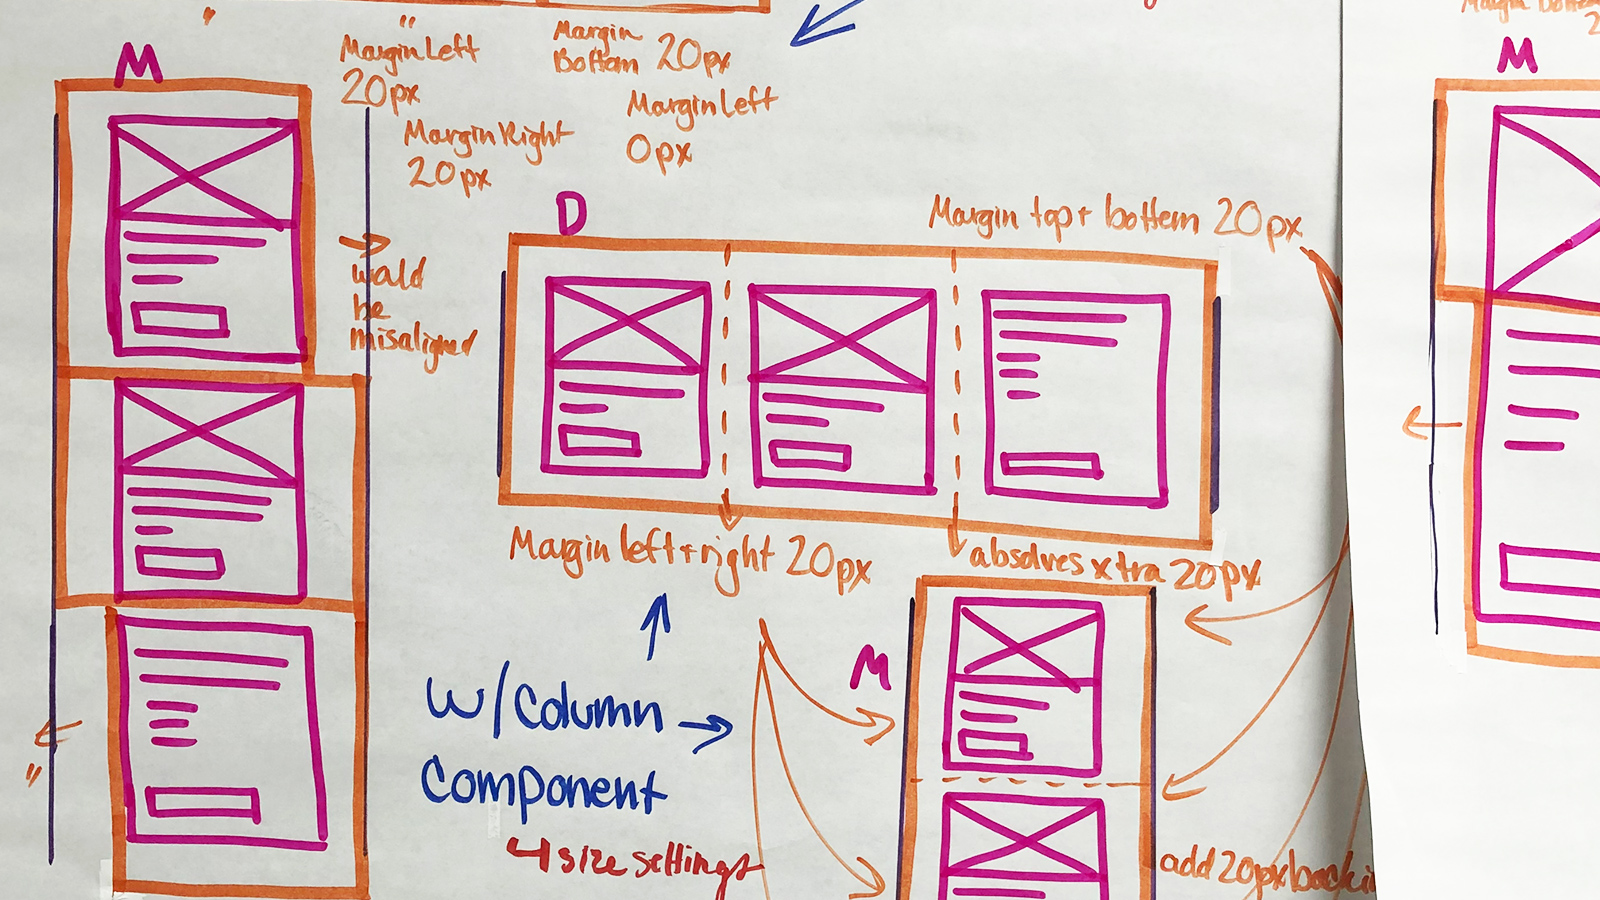 M
Margin Left
20px
Margin Right
20px
Margin
Bottom 20px
Margin Left
0px
would
be
misaligned
D
Margin top + bottom 20px
Margin left + right 20px
absolves xtra 20px
W/Column
Component
4 size settings
M
add 20px back in
Margin Bottom
M